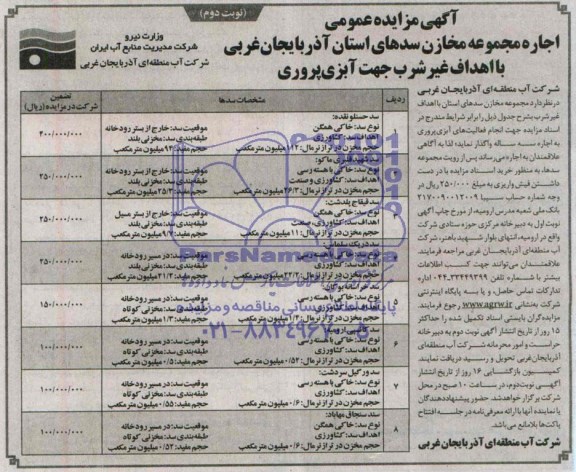 (نوبت دوم)
آگهی مزایده عمومی
اجاره مجموعه مخازن سدهای استان آذربایجان غربی
با اهداف غیر شرب جهت آبزی پروری
وزارت نیرو
شرکت مدیریت منابع آب ایران
شرکت آب منطقه‌ای آذربایجان غربی
شرکت آب منطقه‌ای آذربایجان غربی
در نظر دارد مجموعه مخازن سدهای استان با اهداف
غیر شرب بشرح جدول ذیل را برابر شرایط مندرج در
اسناد مزایده جهت انجام فعالیت‌های آبزی پروری
به اجاره سه ساله واگذار نماید؛ لذا به آگاهی
علاقمندان به اجاره می‌رساند پس از رویت مجموعه
سدها، به منظور خرید اسناد مزایده با در دست
داشتن فیش واریزی به مبلغ ۲۵۰/۰۰۰ ریال در
وجه شماره حساب سیبا ۲۱۷۰۰۹۰۰۱۲۰۰۹
بانک ملی شعبه مدرس ارومیه، از مورخ چاپ آگهی
نوبت اول به دبیرخانه مرکزی حوزه ستادی شرکت
واقع در ارومیه، انتهای بلوار شهید باهنر، شرکت
آب منطقه‌ای آذربایجان غربی مراجعه فرمایند.
علاقمندان می‌توانند جهت کسب اطلاعات
بیشتر با شماره تلفن ۳۳۴۴۹۳۹۹-۰۴۴ اداره
تدارکات تماس حاصل، و یا به پایگاه اینترنتی
شرکت به نشانی www.agrw.ir رجوع فرمایند.
مزایده گران بایستی اسناد تکمیل شده را حداکثر
۱۵ روز از تاریخ انتشار آگهی نوبت دوم به دبیرخانه
حراست و امور محرمانه شرکت آب منطقه‌ای
آذربایجان غربی تحویل و رسید دریافت نمایند.
کمیسیون بازگشایی ۱۶ روز از تاریخ انتشار
آگهی نوبت دوم، در ساعت ۱۰ صبح در محل
شرکت برگزار خواهد شد. حضور پیشنهاددهندگان
یا نماینده آنها با ارائه معرفی نامه در جلسه افتتاح
پاکت‌ها بلامانع می‌باشد.
شرکت آب منطقه‌ای آذربایجان غربی
ردیف
مشخصات سدها
تضمین
شرکت در مزایده (ریال)
۱
سد حسنلو نقده:
نوع سد: خاکی همگن
اهداف سد: کشاورزی
حجم مخزن در تراز نرمال: ۱۱۲ میلیون مترمکعب
موقعیت سد: خارج از بستر رودخانه
طبقه‌بندی سد: مخزنی بلند
حجم مفید: ۹۴ میلیون مترمکعب
۴۰۰/۰۰۰/۰۰۰
نوع سد: خاکی با هسته رسی
اهداف سد: کشاورزی و صنعت
موقعیت سد: خارج از بستر رودخانه
طبقه‌بندی سد: مخزنی بلند
۲۵۰/۰۰۰/۰۰۰
سد قیقاج پلدشت:
نوع سد: خاکی همگن
اهداف سد: کشاورزی، صنعت
حجم مخزن در تراز نرمال: ۱۱ میلیون مترمکعب
موقعیت سد: خارج از بستر مسیل
طبقه‌بندی سد: مخزنی بلند
حجم مفید: ۹/۷ میلیون مترمکعب
۲۵۰/۰۰۰/۰۰۰
سد دریک سلماس:
موقعیت سد: در مسیر رودخانه
طبقه‌بندی سد: مخزنی بلند
۲۵۰/۰۰۰/۰۰۰
۵
موقعیت سد: در مسیر رودخانه
طبقه‌بندی سد: مخزنی کوتاه
۱۰۰/۰۰۰/۰۰۰
۶
نوع سد: خاکی با هسته رسی
اهداف سد: کشاورزی
حجم مخزن در تراز نرمال: ۰/۵۲ میلیون مترمکعب
موقعیت سد: در مسیر رودخانه
طبقه‌بندی سد: مخزنی کوتاه
حجم مفید: ۰/۵ میلیون مترمکعب
۱۰۰/۰۰۰/۰۰۰
۷
سد ورگیل سردشت:
نوع سد: خاکی با هسته رسی
اهداف سد: کشاورزی
حجم مخزن در تراز نرمال: ۰/۶ میلیون مترمکعب
موقعیت سد: در مسیر رودخانه
طبقه‌بندی سد: مخزنی کوتاه
حجم مفید: ۰/۵۵ میلیون مترمکعب
۱۰۰/۰۰۰/۰۰۰
۸
سد سنجاق مهاباد:
نوع سد: خاکی همگن
اهداف سد: کشاورزی
حجم مخزن در تراز نرمال: ۰/۶ میلیون مترمکعب
موقعیت سد: در مسیر رودخانه
طبقه‌بندی سد: مخزنی کوتاه
حجم مفید: ۰/۵۲ میلیون مترمکعب
۱۰۰/۰۰۰/۰۰۰
ParsNamadData
پایگاه اطلاع رسانی مناقصه و مزایده
۰۲۱-۸۸۳۴۹۶۷۰-۵